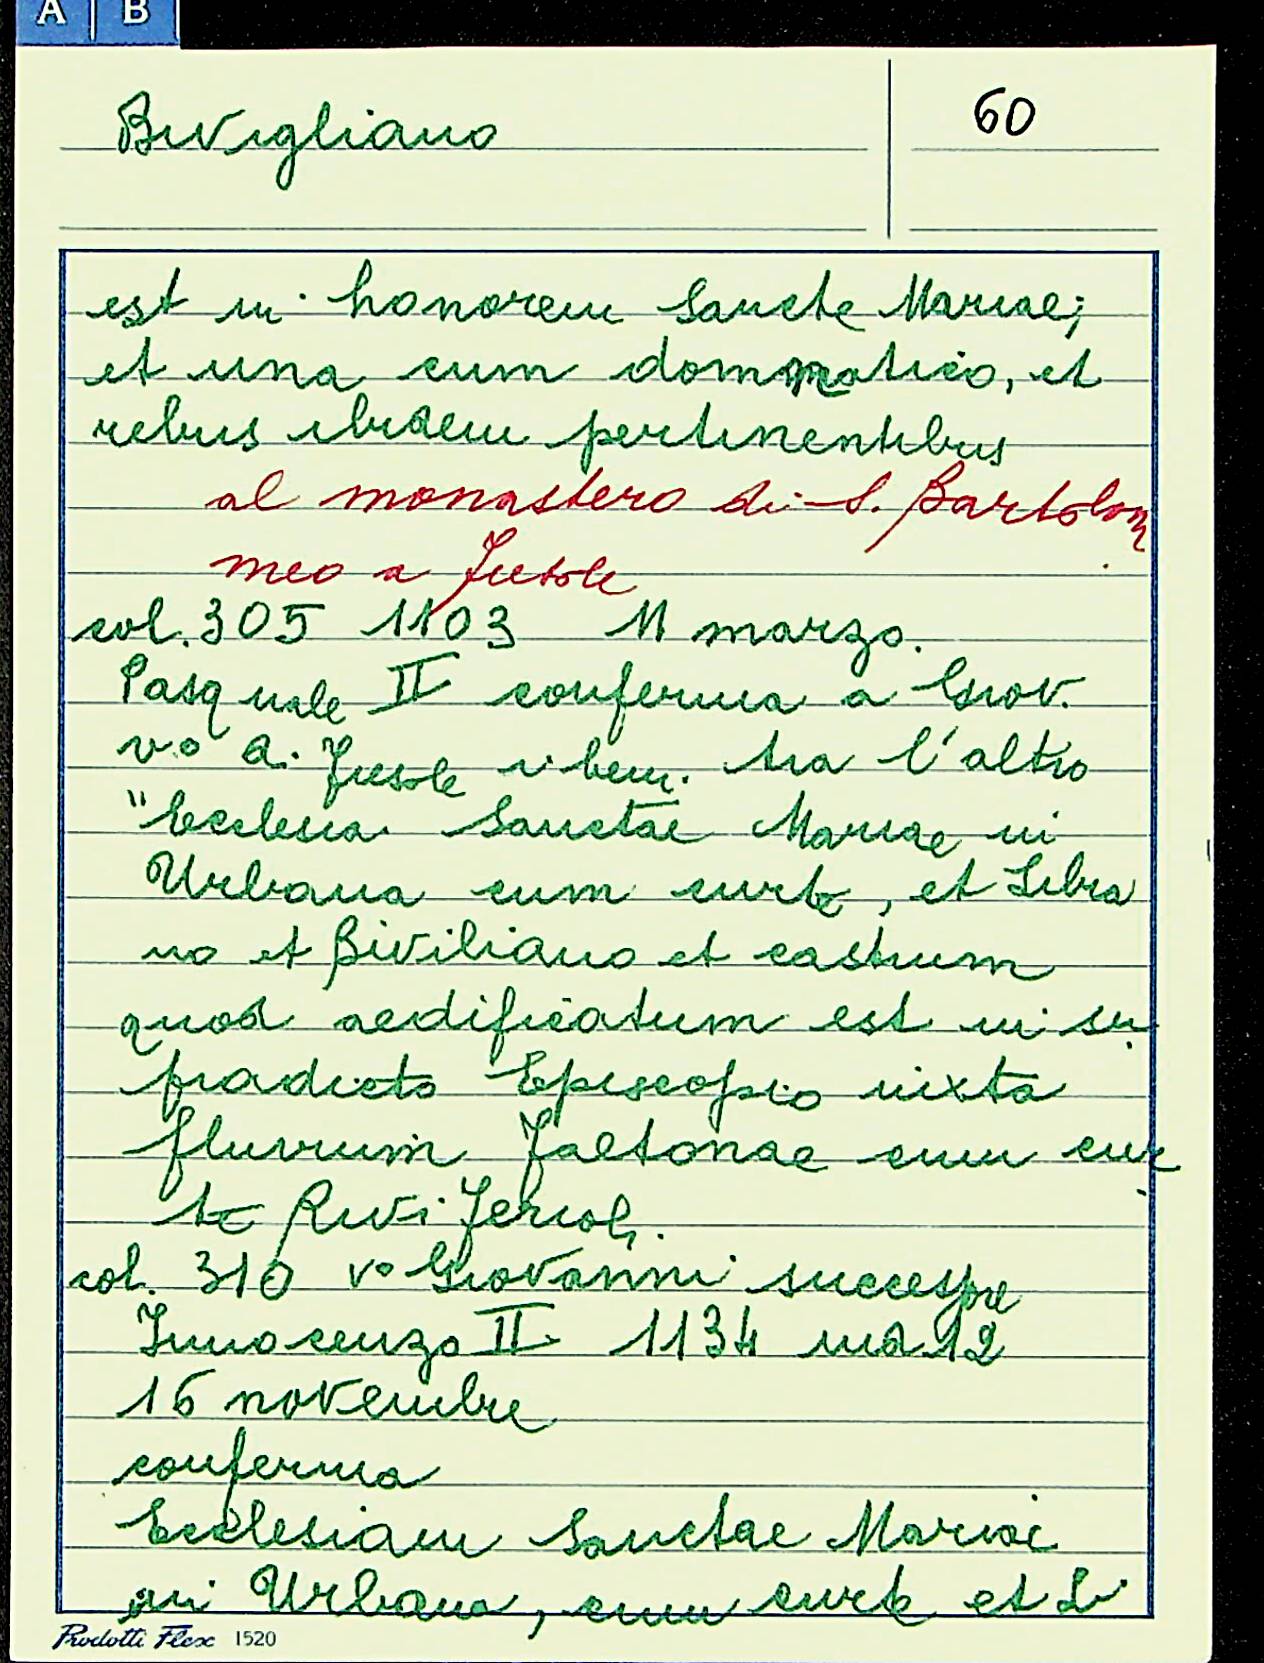 A B
Bivigliano
60
est in honorem Sancte Mariae;
et una cum dommatico, et
rebus ibidem pertinentibus
al monastero di S. Bartolom
meo a Fiesole
col. 305 1103 11 marzo.
Pasquale II conferma a Giov.
vo a. Fiesole i beni. tra l'altro
"Ecclesia Sanctae Mariae in
Urbana cum curte, et Libra
no et Biviliano et castrum
quod aedificatum est in su
pradicto Episcopio iuxta
fluvium Faltonae cum cur
te Rivi
col. 310 vo Giovanni successore
Innocenzo II 1134 ind. 12
16 novembre
conferma
Ecclesiam Sanctae Mariae
in Urbana, cum curte et Li
Prodotti Flex 1520